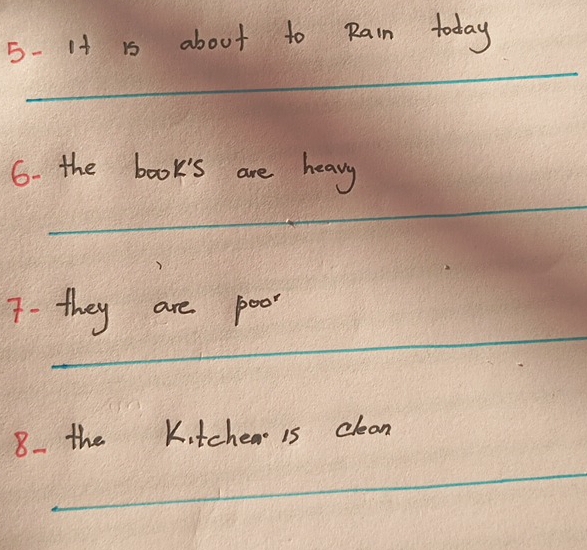 5- It is about to Rain today
6- the book's are heavy
7- they are poor
8- the Kitchen is clean